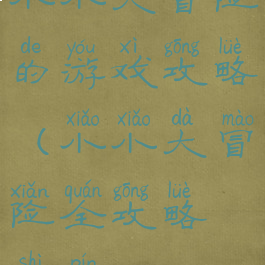 de yóu xì gōng lüè
的游戏攻略
xiǎo xiǎo dà mào
(小小大冒
xiǎn quán gōng lüè
险全攻略